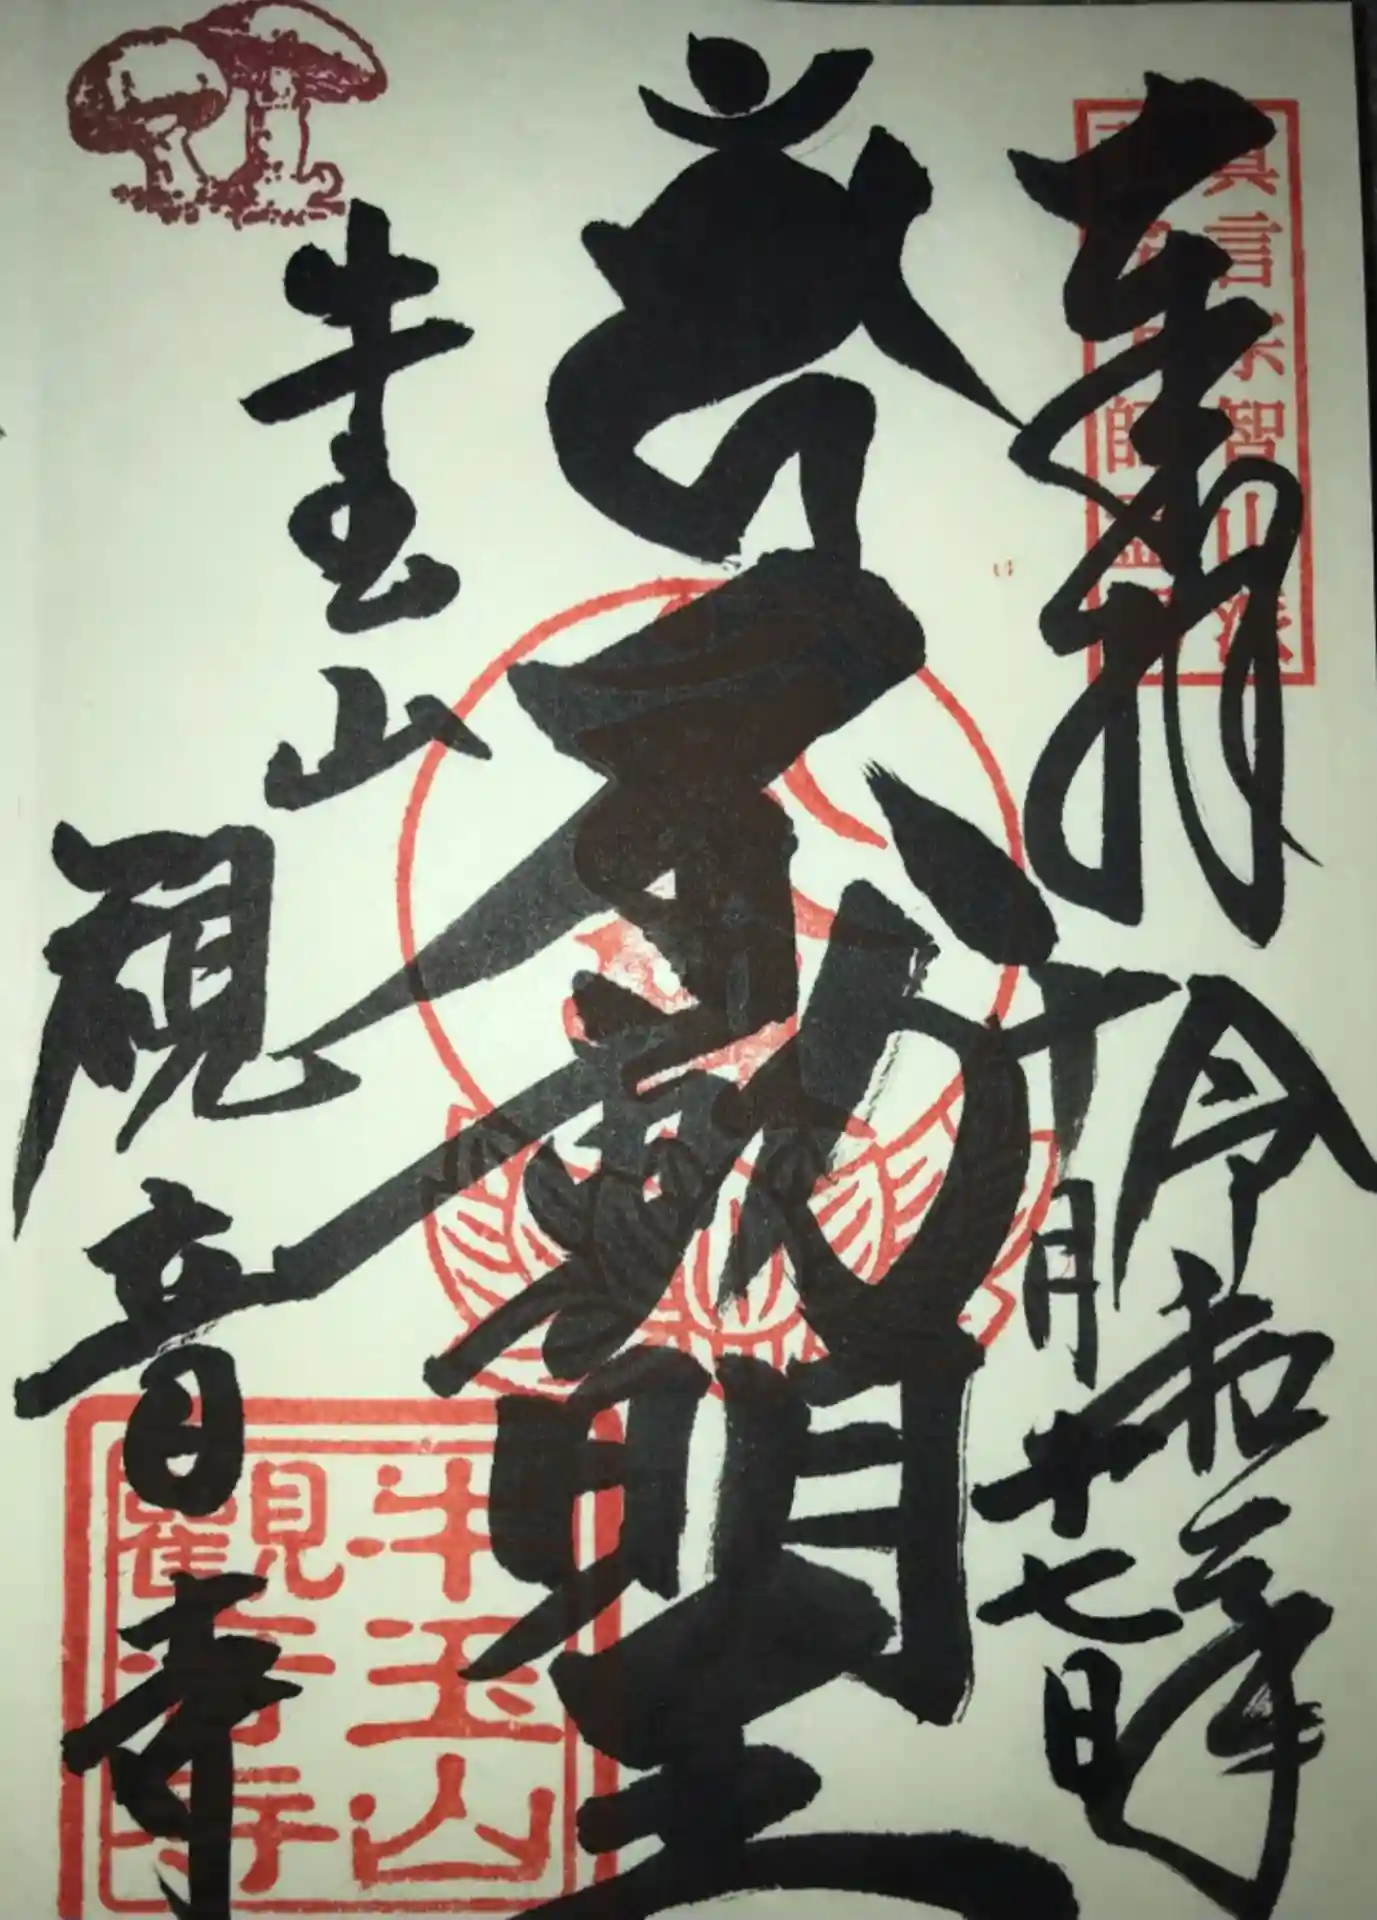 真言宗智山派
奉拝
令和
年
十月十七日
不動明王
牛玉山
観音寺
牛玉山
觀音寺